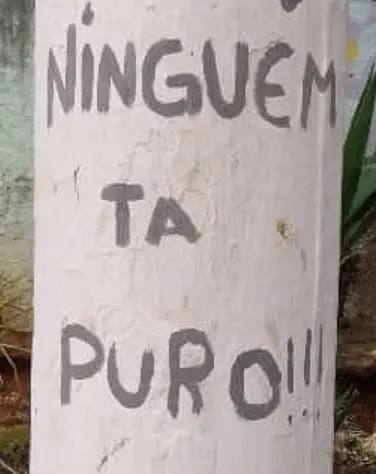 NINGUÉM
TA
PURO!!!